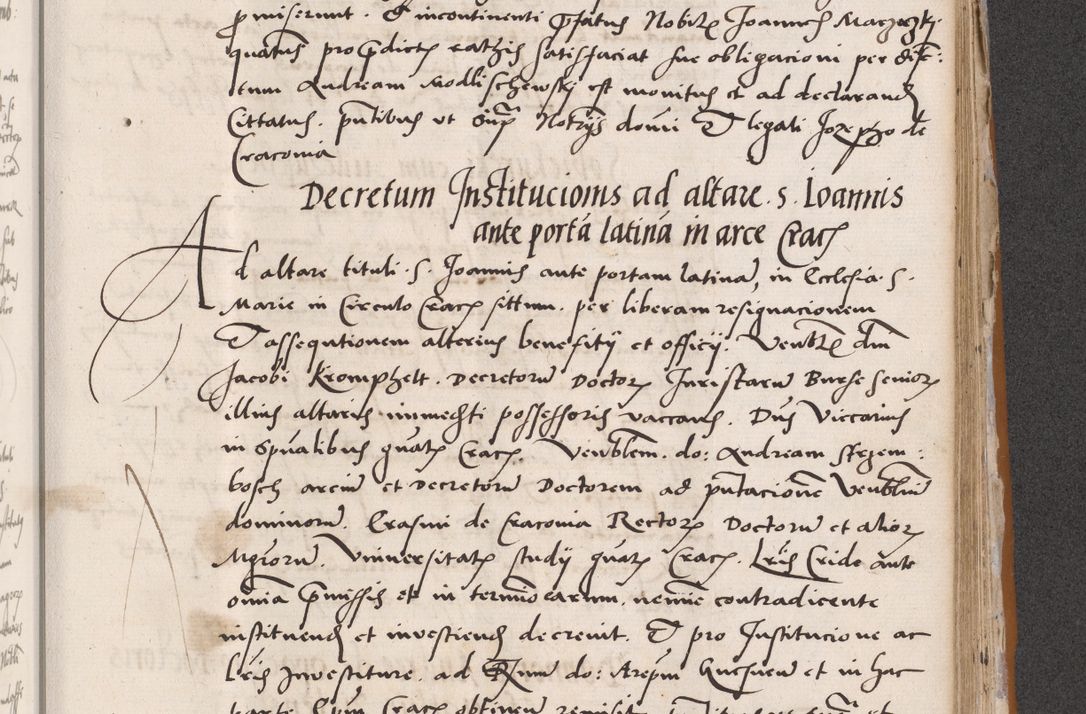 promiserunt. Et incontinenti prefatus Nobilis Joannes
quatenus pro predictis satisfaciat sue obligacioni per
tum Andream Modlischewskj est monitus et ad declarand
Cittatus. pntibus ut supra Notarijs domi et legati Jozepho de
Cracouia
Decretum Institucionis ad altare .s. Ioannis
ante portā latinā in arce Crac
Ad altare tituli .S. Joannis ante portam latinā, in Ecclesia .S.
Marie in Circulo Crac sittum. per liberam resignacionem
et assequtionem alterius benefitij et officij. Venblis dni
Jacobi Kromphelt. Decretorū Doctor Juristarū Burse senior
illius altaris immedti possessoris vaccans. Dnūs Viccarius
in spūalibus gnalis Crac. Venblem. do: Andream Stezem:
bosch arciū et Decretorū Doctorem ad pntacionē Venbliū
dominorū. Erasmi de Cracouia Rectoris Doctorū et alior
Mgrorū. Vniuersitatis studij gnalis Crac. Lris Cride ante
omnia premissis et in termino earum. nemine contradicente
instituend et inuestiend decreuit. Et pro Institucione ac
Lris Inuestiture. ad Rmum do: Arepm Gnesnen et in hac
parte Epūm Crac